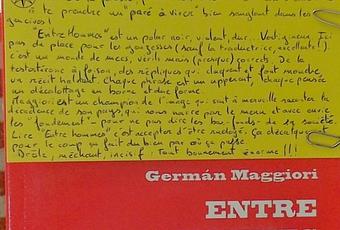 "te prendre un "paré à virer" bien sanglant dans les
gencives !
"Entre Hommes" est un polar noir, violent, dur... Vertigineux. Ici
pas de place pour les gonzesses (sauf la traductrice, excellente !).
c'est un monde de mecs, vérolés mais (presque) corrects. De la
testostérone à foison, des répliques qui claquent et font mouche,
un récit haletant. Chaque phrase est un uppercut, chaque pensée
un décollage en bonne et due forme.
Maggiori est un champion de l'image qui sait à merveille raconter la
décadence de son pays, qui nous narre par le menu et avec
les "fondement" pour ne pas les bas-fonds de sa société.
Lire "Entre hommes" c'est accepter d'être
pour le coup ça fait du bien par où ça passe.
Drôle, méchant, incisif : Tout bonnement énorme !!!
Germán Maggiori
ENTRE